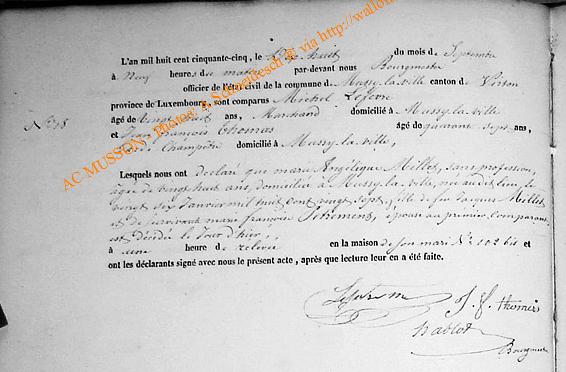 L'an mil huit cent cinquante-cinq, le dix huit du mois de Septembre
à Neuf heures de matin par-devant nous Bourgmestre
officier de l'état civil de la commune de Mussy-la-ville canton de Virton
province de Luxembourg, sont comparus Michel Lefevre
âgé de vingt huit ans, Marchand domicilié à Mussy-la-ville
et Jean François Thomas âgé de quarante sept ans,
Champêtre domicilié à Mussy-la-ville,
Lesquels nous ont déclaré que marie Angélique Millet, sans profession,
âgée de vingt huit ans, domiciliée à Mussy-la-ville, née audit lieu, le
vingt six Janvier mil huit Cent vingt sept, fille de feu Jacques Millet
et de survivant marie françoise, épouse au premier Comparant
est décédée le Jour d'hier,
à une heure de relevée en la maison de son mari N° 102 bis et
ont les déclarants signé avec nous le présent acte, après que lecture leur en a été faite.
J. f. thomas
Bourgmestre
AC MUSSON, Photos: T. Scheideesch @ via http://wallo